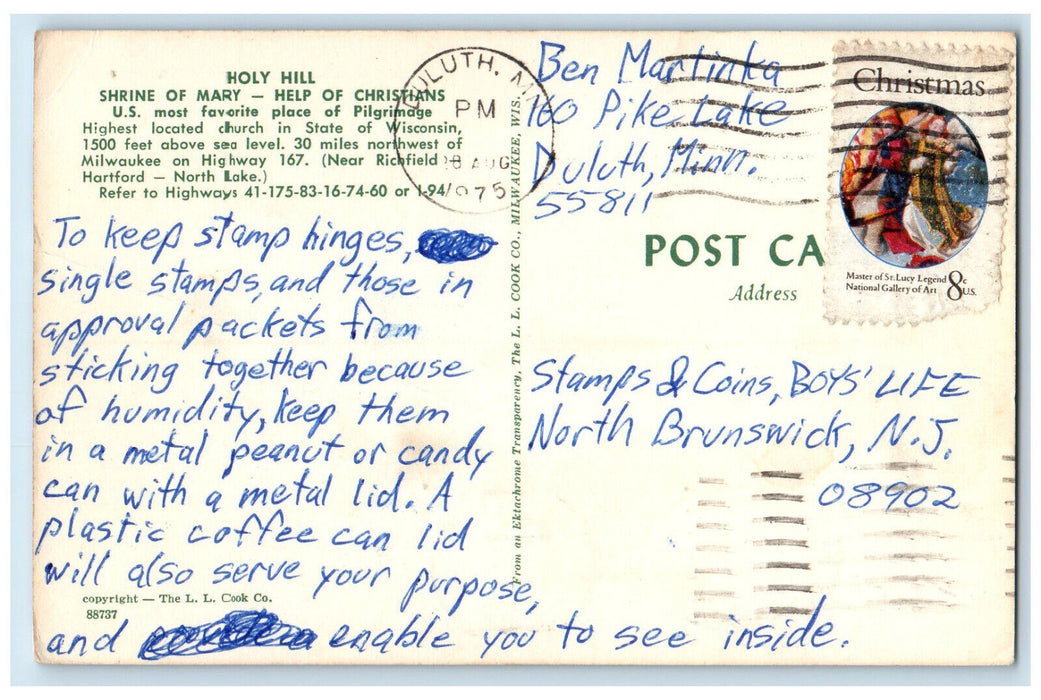 HOLY HILL
SHRINE OF MARY — HELP OF CHRISTIANS
U.S. most favorite place of Pilgrimage
Highest located church in State of Wisconsin,
1500 feet above sea level. 30 miles northwest of
Milwaukee on Highway 167. (Near Richfield
Hartford — North Lake.)
Refer to Highways 41-175-83-16-74-60 or I-94
To keep stamp hinges,
single stamps, and those in
approval packets from
sticking together because
of humidity, keep them
in a metal peanut or candy
can with a metal lid. A
plastic coffee can lid
will also serve your purpose,
and enable you to see inside.
copyright — The L. L. Cook Co.
88737
From an Ektachrome Transparency, The L. L. COOK CO., MILWAUKEE, WIS.
DULUTH, MN
PM
28 AUG
1975
Ben Martinka
160 Pike Lake
Duluth, Minn.
55811
POST CA
Address
Christmas
Master of St. Lucy Legend
National Gallery of Art
8c U.S.
Stamps & Coins, BOYS' LIFE
North Brunswick, N.J.
08902